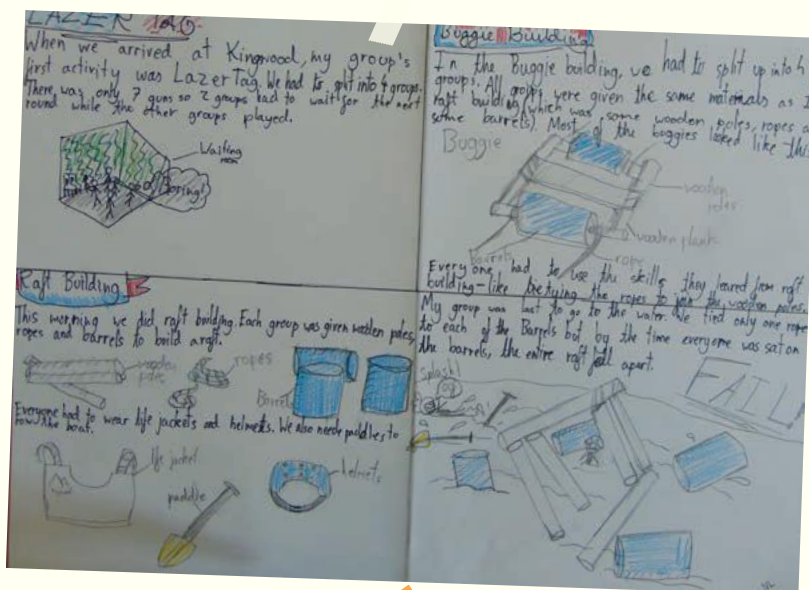 LAZER TAG
When we arrived at Kingwood, my group's
first activity was LazerTag. We had to split into 4 groups.
There was only 7 guns so 2 groups had to wait for the next
round while the other groups played.
Waiting
Boring!
Raft Building
This morning we did raft building. Each group was given wooden poles,
ropes and barrels to build a raft.
wooden
ropes
Barrels
Everyone had to wear life jackets and helmets. We also needed paddles to
row the boat.
life jacket
paddle
helmets
Buggie Building
In the Buggie building, we had to split up into 4
groups. All groups were given the same materials as
raft building (which was some wooden poles, ropes
some barrels). Most of the buggies looked like this
Buggie
wooden
poles
wooden plank
Barrels
rope
Everyone had to use the skills they learned from raft
building - like tying the ropes to join the wooden poles.
My group was last to go to the water. We tied only one rope
to each of the Barrels but by the time everyone was sat on
the barrels, the entire raft fell apart.
Splash!
FAIL!